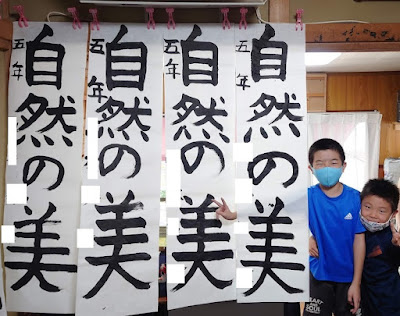 五年
自然の美
五年
自然の美
五年
自然の美
五年
自然の美